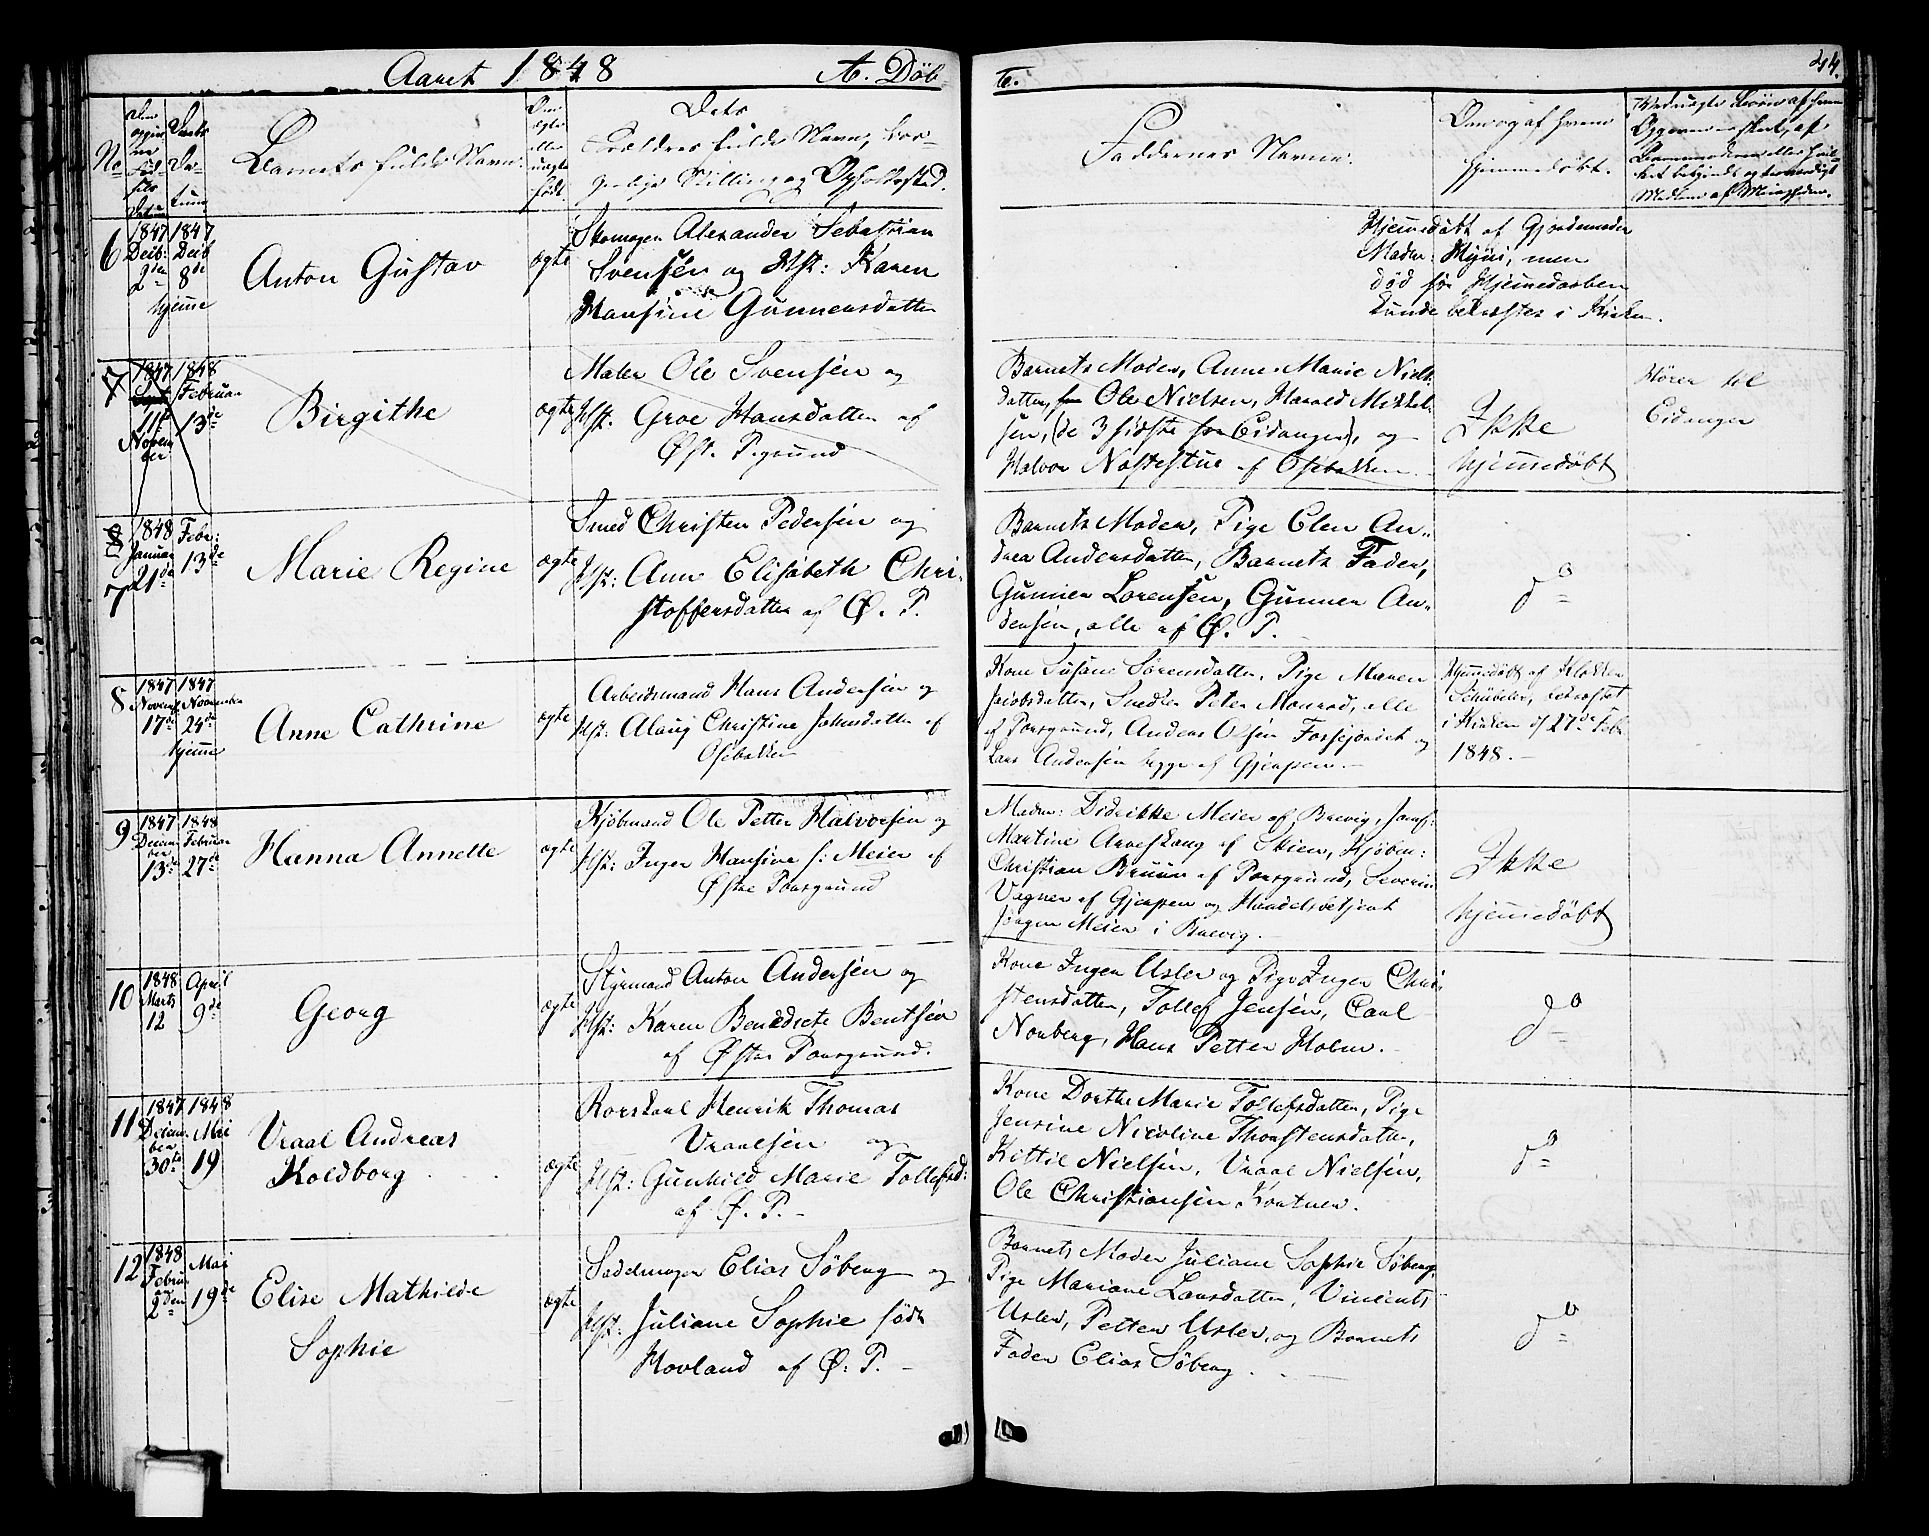 Aaret 1848
A. Døb
te.
44.
No
Dets
Barnets fulde Navn.
Forældres fulde Navn, bor-
gerlige Stilling og Opholdssted.
Faddernes Navne.
Om og af hvem
hjemmedøbt.
6
1847
Decb:
2den
1847
Decb
8de
hjemme
Anton Gustav
ægte
Skomager Alexander Sebastian
Svensen og Hst: Karen
Hansine Gunnersdatter
Hjemmedøbt af Gjordemoder
Madm:
død før Hjemmedaaben
kunde bekræftes i Kirken.
7
1847
11te
Novem
ber
1848
Februar
13de
Birgithe
ægte
Maler Ole Svensen og
Hst. Groe Hansdatter af
Øst. P.grund
Barnets Moder, Anne Marie Niels-
datter, Ole Nielsen, Harald Mikkel-
sen, (de 3 sidste fra Eidanger), og
Halvor Nøstestue af Osebakken.
Ikke
hjemmedøbt
Hører til
Eidanger
8
7
1848
Januar
21de
Febr:
13de
Marie Regine
ægte
Smed Christen Pedersen og
Hst: Ann Elisabeth Chri-
stoffersdatter af Ø. P.
Barnets Moder, Pige Elen An-
drea Andersdatter, Barnets Fader,
Gunner Lorensen, Gunner An-
dersen, alle af Ø. P.
do
8
1847
Novemb
17de
1847
November
24de
hjemme
Anne Cathrine
ægte
Arbeidsmand Hans Andersen og
Hst: Alaug Christine Johnsdatter af
Osebakken
Kone Susane Sørensdatter, Pige Maren
Jacobsdatter, Snedker Peter Monrad, alle
af Porsgrund, Anders Olsen Fossejordet og
Lars Andersen begge af Gjerpen.
Hjemmedøbt af Klokker
Schubeler, bekræftet
i Kirken d 27de Febr
1848.
9
1847
Decem
ber
13de
1848
Februar
27de
Hanna Annette
ægte
Kjøbmand Ole Petter Halvorsen og
Hst: Inger Hansine f: Meier af
Østre Porsgrund
Madm: Didrikke Meier af Brevig, Jomf:
Martine Arveskaug af Skien, Kjøbm:
Christian Bruun af Porsgrund, Severin
Vagner af Gjerpen og Handelsbetjent
Jørgen Meier i Brevig.
Ikke
hjemmedøbt
10
1848
Marts
12
April
9de
Georg
ægte
Styrmand Anton Andersen og
Hst: Karen Benedicte Bentsen
af Østre Porsgrund.
Kone Inger Usler og Pige Inger Chri-
stensdatter, Tollef Jensen, Carl
Norberg, Hans Petter Holm.
do
11
1847
Decem
ber
30te
1848
Mai
19
Vraal Andreas
Holdborg
ægte
Rorskarl Henrik Thomas
Vraalsen og
Hst: Gunhild Marie Tollefsd:
af Ø. P.
Kone Dorthe Marie Tollefsdatter, Pige
Jensine Nicoline Thorstensdatter,
Kettil Nielsen, Vraal Nielsen,
Ole Christiansen Kortner.
do
12
1848
Februar
2den
Mai
19de
Elise Mathilde
Sophie
ægte
Sadelmager Elias Søberg og
Hst: Juliane Sophie født
Hovland af Ø: P.
Barnets Moder Juliane Sophie Søberg,
Pige Mariane Larsdatter, Vincents
Usler, Petter Usler, og Barnets
Fader Elias Søberg.
do